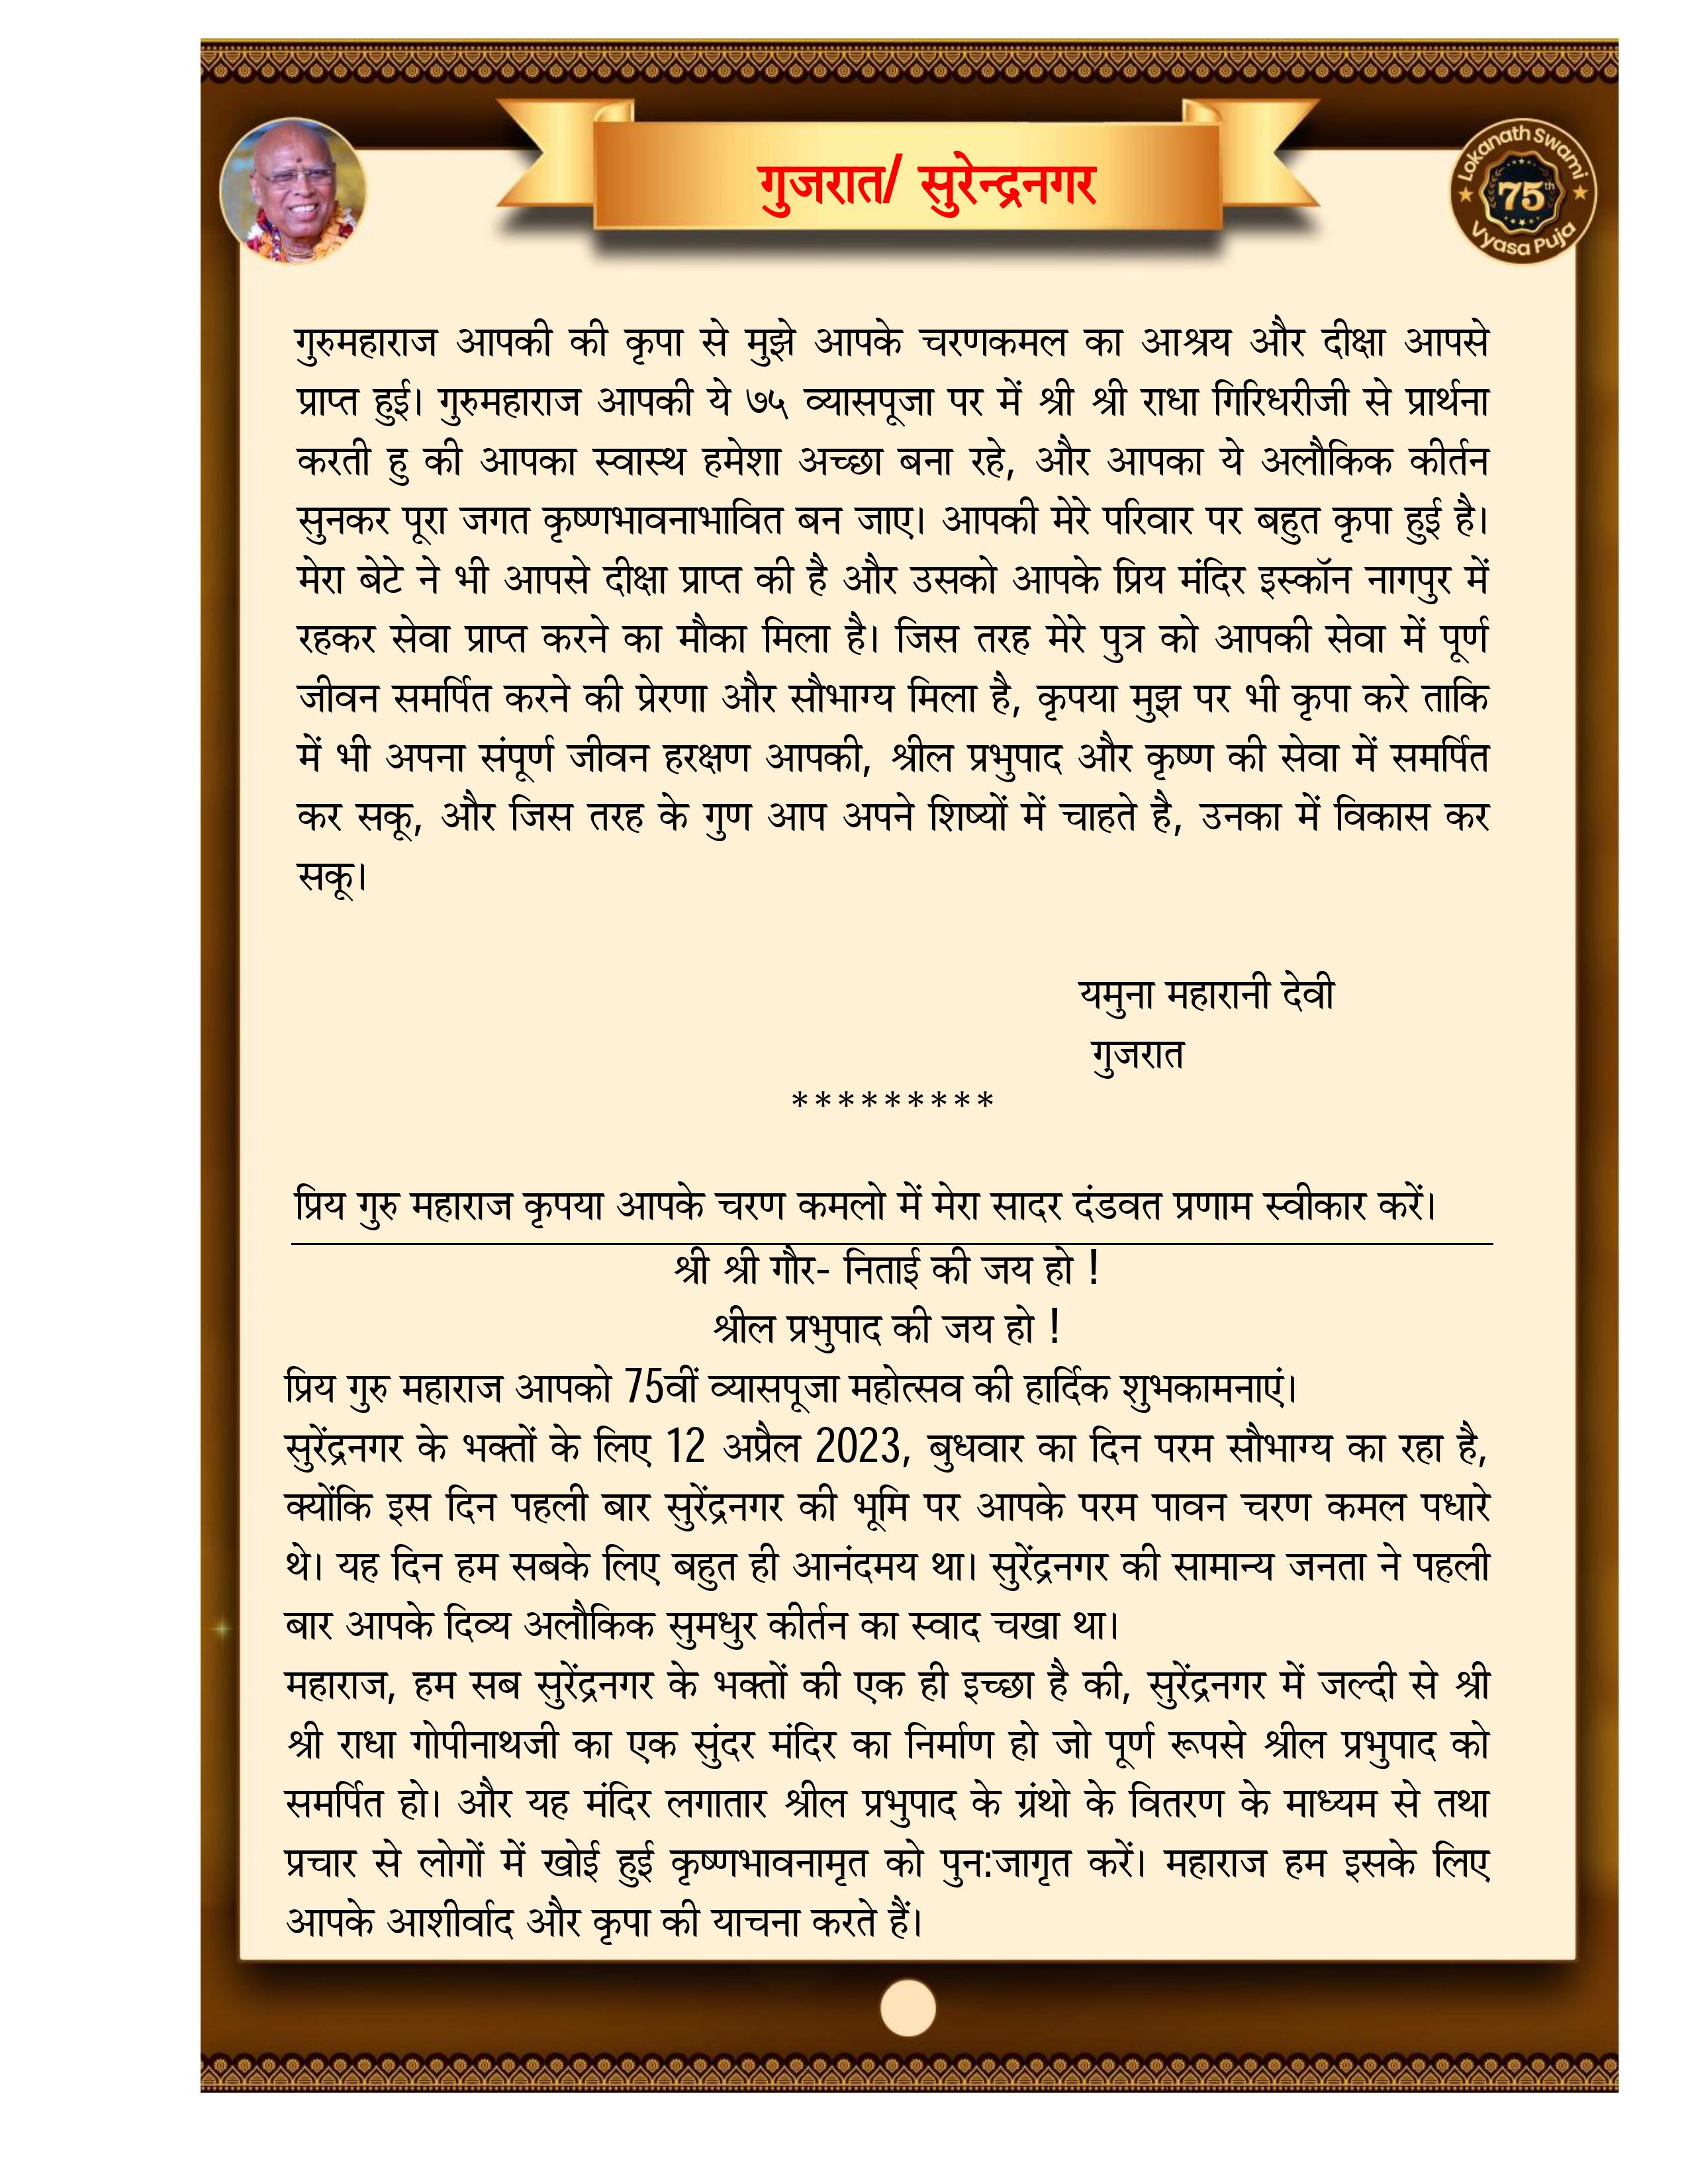 गुजरात/ सुरेन्द्रनगर
Lokanath Swami
75th
Vyasa Puja
गुरुमहाराज आपकी की कृपा से मुझे आपके चरणकमल का आश्रय और दीक्षा आपसे
प्राप्त हुई। गुरुमहाराज आपकी ये ७५ व्यासपूजा पर में श्री श्री राधा गिरिधरीजी से प्रार्थना
करती हु की आपका स्वास्थ हमेशा अच्छा बना रहे, और आपका ये अलौकिक कीर्तन
सुनकर पूरा जगत कृष्णभावनाभावित बन जाए। आपकी मेरे परिवार पर बहुत कृपा हुई है।
मेरा बेटे ने भी आपसे दीक्षा प्राप्त की है और उसको आपके प्रिय मंदिर इस्कॉन नागपुर में
रहकर सेवा प्राप्त करने का मौका मिला है। जिस तरह मेरे पुत्र को आपकी सेवा में पूर्ण
जीवन समर्पित करने की प्रेरणा और सौभाग्य मिला है, कृपया मुझ पर भी कृपा करे ताकि
में भी अपना संपूर्ण जीवन हरक्षण आपकी, श्रील प्रभुपाद और कृष्ण की सेवा में समर्पित
कर सकू, और जिस तरह के गुण आप अपने शिष्यों में चाहते है, उनका में विकास कर
सकू।
यमुना महारानी देवी
गुजरात
*********
प्रिय गुरु महाराज कृपया आपके चरण कमलो में मेरा सादर दंडवत प्रणाम स्वीकार करें।
श्री श्री गौर- निताई की जय हो !
श्रील प्रभुपाद की जय हो !
प्रिय गुरु महाराज आपको 75वीं व्यासपूजा महोत्सव की हार्दिक शुभकामनाएं।
सुरेंद्रनगर के भक्तों के लिए 12 अप्रैल 2023, बुधवार का दिन परम सौभाग्य का रहा है,
क्योंकि इस दिन पहली बार सुरेंद्रनगर की भूमि पर आपके परम पावन चरण कमल पधारे
थे। यह दिन हम सबके लिए बहुत ही आनंदमय था। सुरेंद्रनगर की सामान्य जनता ने पहली
बार आपके दिव्य अलौकिक सुमधुर कीर्तन का स्वाद चखा था।
महाराज, हम सब सुरेंद्रनगर के भक्तों की एक ही इच्छा है की, सुरेंद्रनगर में जल्दी से श्री
श्री राधा गोपीनाथजी का एक सुंदर मंदिर का निर्माण हो जो पूर्ण रूपसे श्रील प्रभुपाद को
समर्पित हो। और यह मंदिर लगातार श्रील प्रभुपाद के ग्रंथो के वितरण के माध्यम से तथा
प्रचार से लोगों में खोई हुई कृष्णभावनामृत को पुन:जागृत करें। महाराज हम इसके लिए
आपके आशीर्वाद और कृपा की याचना करते हैं।